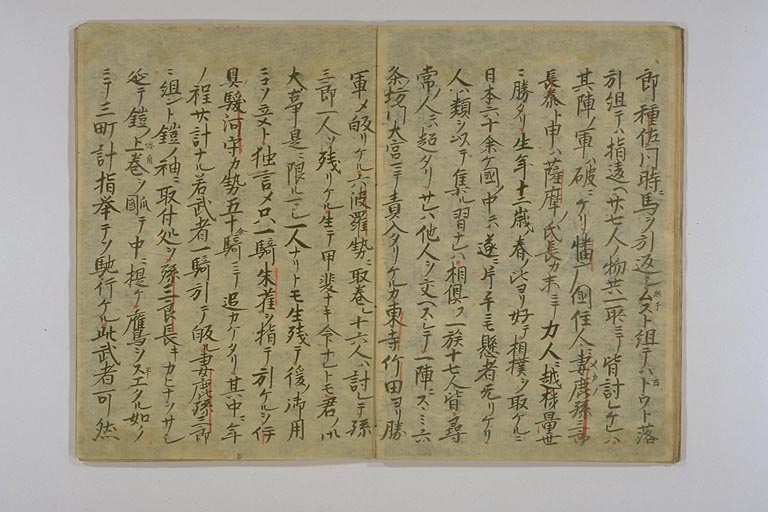 郎種佐同時ニ馬ヲ引返シムスト組テハドウト落
引組テハ指違ヘサ七人物共一取ニテ皆討レケレハ
其陣ノ軍ハ破ニケリ幡广國住人ニ妻鹿孫三郎
長泰ト申ハ薩摩ノ氏長カ末ニテ力人ニ越様量世
ニ勝タリ生年十二歳ノ春ノ比ヨリ好テ相撲ヲ取ケルニ
日本六十余ケ國ノ中ニハ遂ニ片手ニモ懸者无リケリ
人ハ類ヲ以テ集ル習ナレハ相倶フ一族十七人皆尋
常ノ人ニ超タリサレハ他人ヲ交ヘスシテ一陣ニススミ六
条坊門大宮ニテ責入タリケルカ東寺竹田ヨリ勝
軍メ皈リケル六波羅勢ニ取巻レ十六人ハ討レテ孫
三郎一人ソ残リケル生テ甲斐ナキ命ナレトモ君ノ御
大事是ニ限ルマシ一人ナリトモ生残テ後ノ御用
ニコソ立メト独言メ只一騎朱雀ヲ指テ引ケルヲ伊
具駿河守カ勢五十騎ニテ追カケタリ其中ニ年
ノ程廿計ナル若武者一騎引テ皈ル妻鹿孫三郎
ニ組ント鎧ノ袖ニ取付処ヲ孫三郎長キカヒナヲサシ
延テ鎧ノ上巻ヲ爴テ中ニ提ケ鷹ヲスエタル如ク
ニテ三町計指挙テソ馳行ケル此武者可然